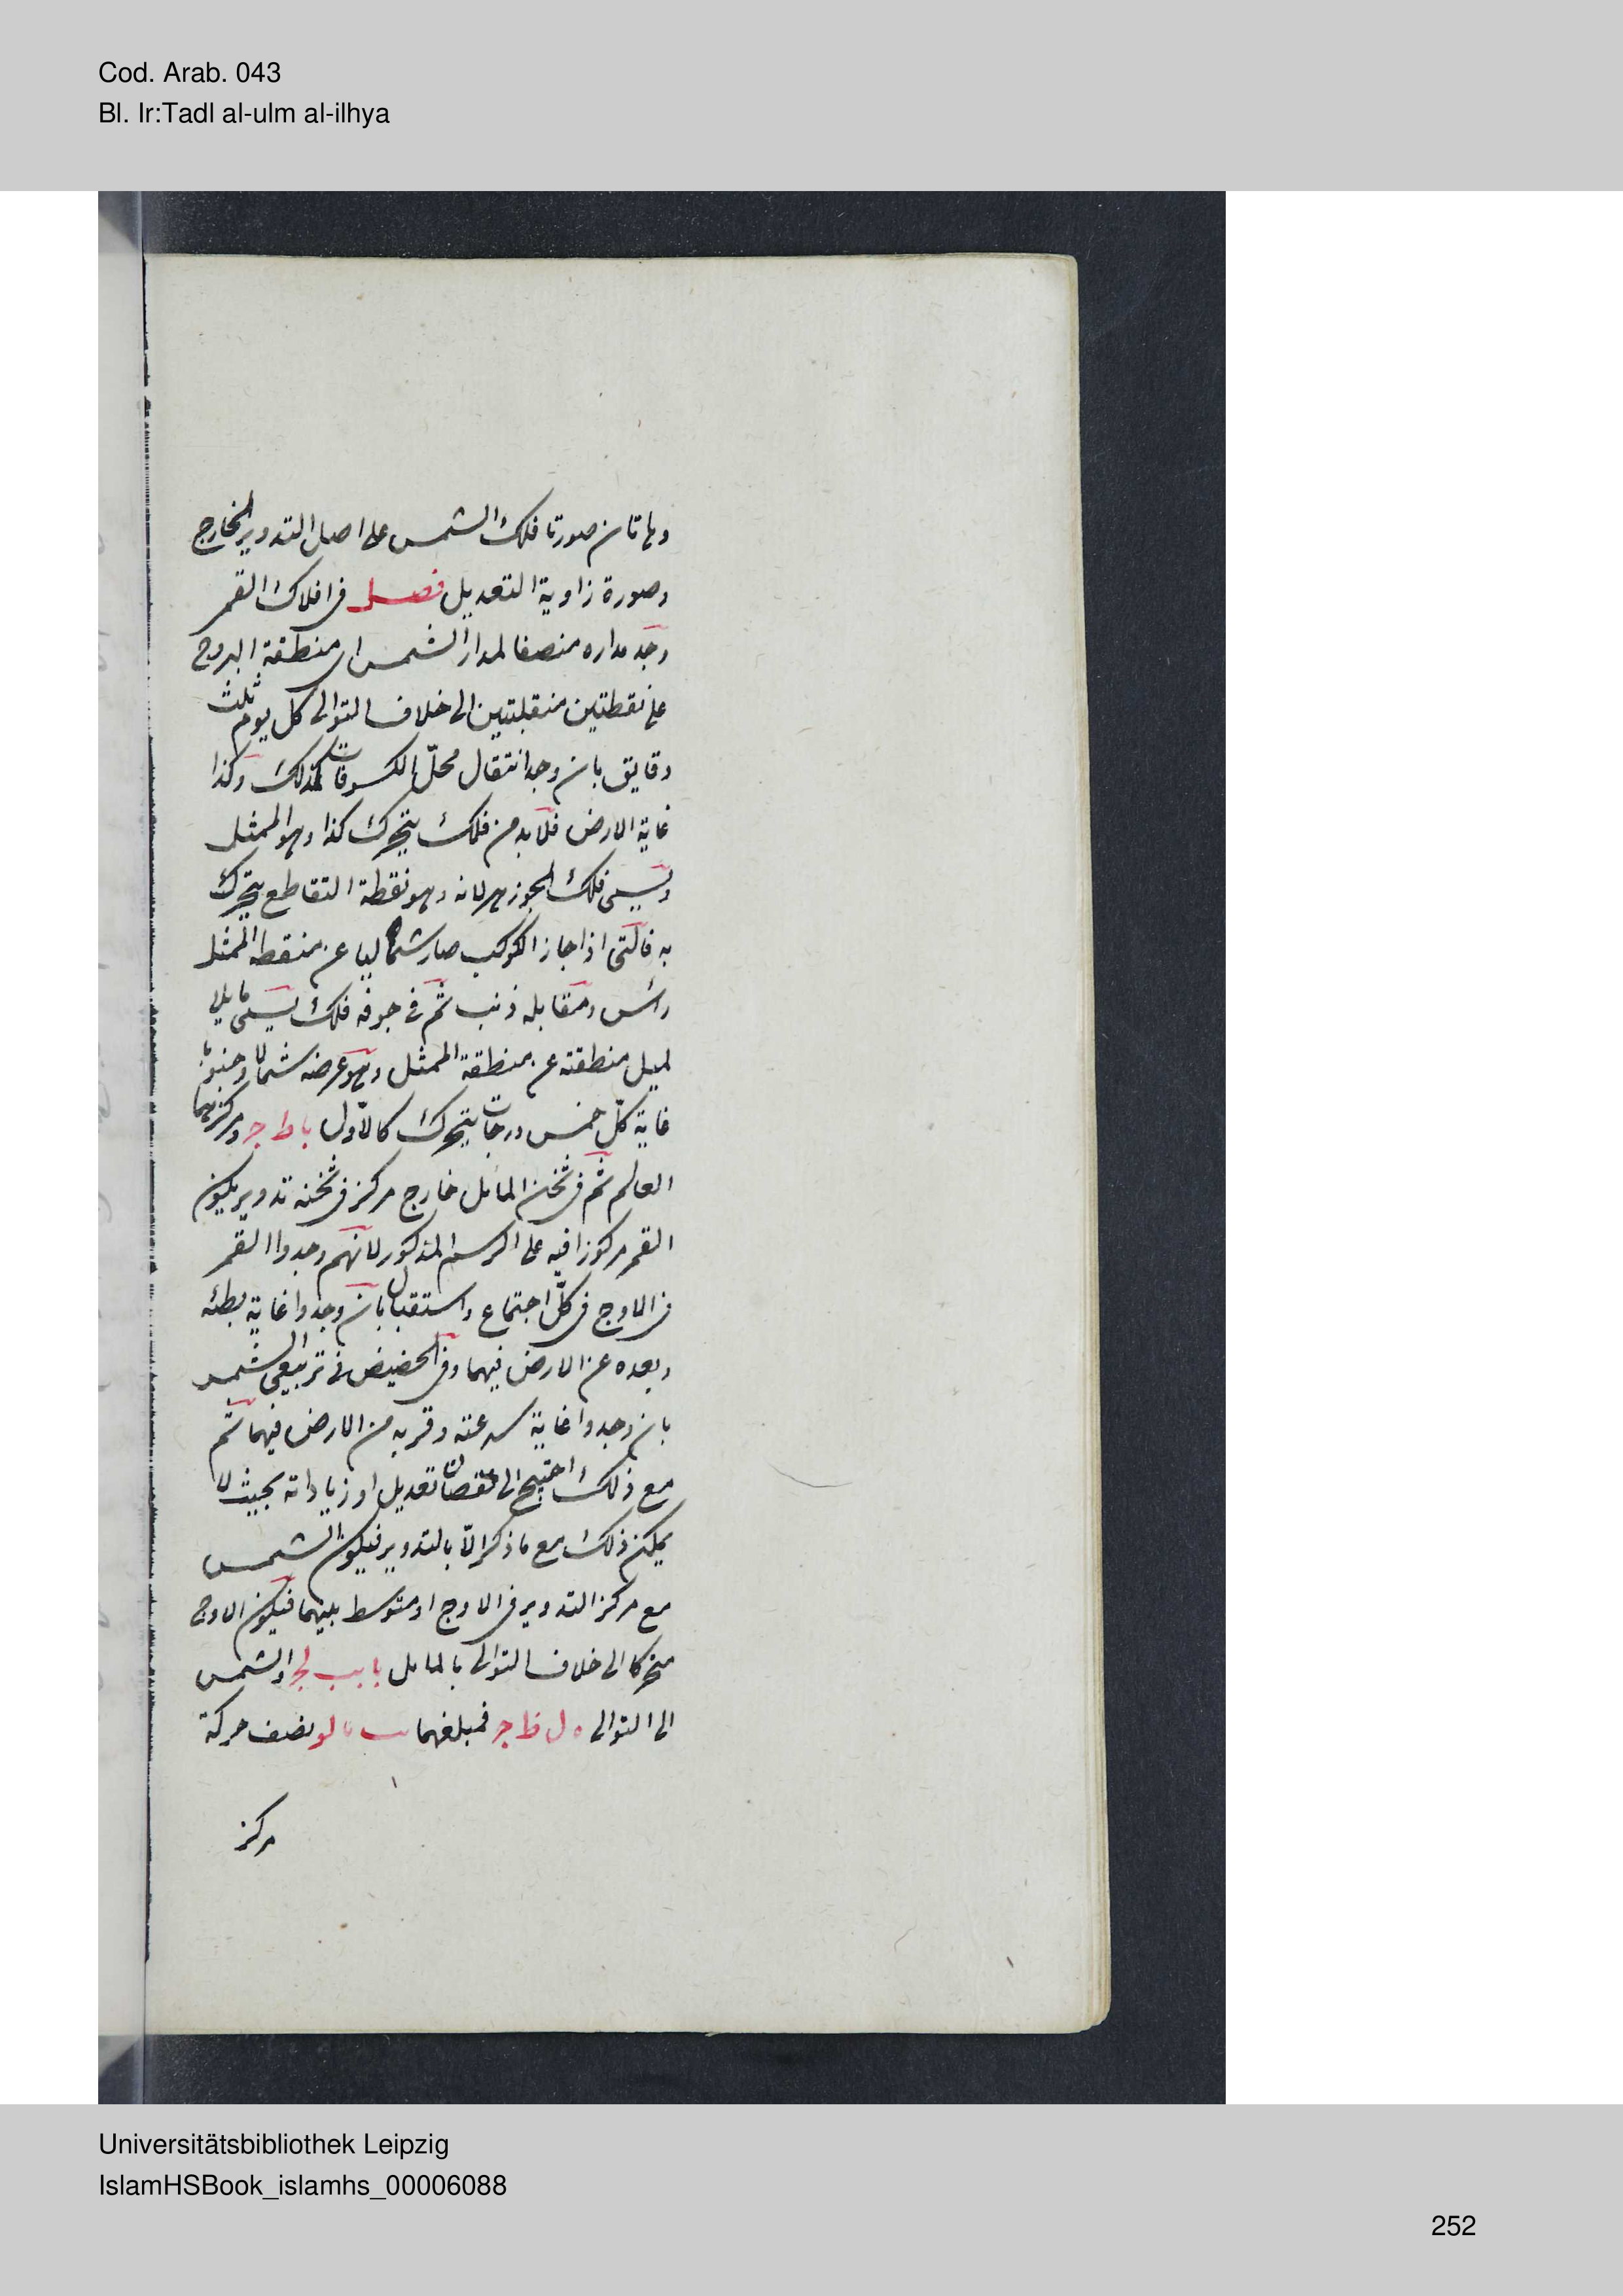 Cod. Arab. 043
Bl. Ir:Tadl al-ulm al-ilhya
وهاتان صورتا فلك الشمس على اصل التدوير الخارج
وصورة زاوية التعديل فصل فى افلاك القمر
وجد مداره منصفا لمدار الشمس اى منطقة البروج
على نقطتين منقلبتين الى خلاف التوالى كل يوم ثلث
دقايق بان وجد انتقال محل الكسوفات كذلك وكذا
غاية الارض فلابد من فلك يتحرك كذا وهو الممثل
ويسمى فلك الجوزهر لانه وهو نقطة التقاطع يتحرك
به فالتى اذا جاز الكوكب صار شماليا عن منقطه الممثل
رأس ومقابله ذنب ثم فى جوفه فلك يسمى مايلا
لميل منطقته عن منطقة الممثل وهو عرضه شمالا وجنوبا
غاية كل خمس درجات يتحرك كالاول با ط جر ومركزهما
العالم ثم فى ثخن المائل خارج مركز فى ثخنه تدوير يكون
القمر مركوزا فيه على الرسم المذكور لانهم وجدوا القمر
فى الاوج فى كل اجتماع واستقبال بان وجدوا غاية بطئه
وبعده عن الارض فيهما وفى الحضيض فى تربيعى الشمس
بان وجدوا غاية سرعته وقربه من الارض فيهما ثم
مع ذلك احتيج الى نقصان تعديل او زياداته بحيث لا
يمكن ذلك مع ما ذكر الا بالتدوير فيكون الشمس
مع مركز التدوير فى الاوج او متوسط بينهما فيكون الاوج
متحركا الى خلاف التوالى بالمايل والشمس
الى التوالى فمبلغهما نصف حركة
مركز
Universitätsbibliothek Leipzig
IslamHSBook_islamhs_00006088
252